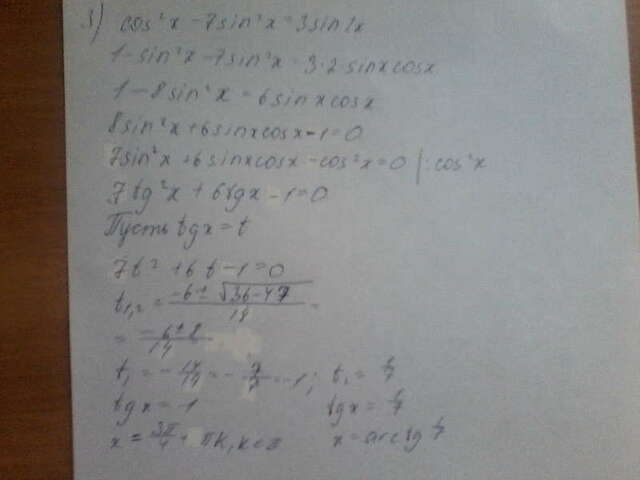 3) cos²x - 7sin²x = 3sin2x
1 - sin²x - 7sin²x = 3·2·sinxcosx
1 - 8sin²x = 6sinxcosx
8sin²x + 6sinxcosx - 1 = 0
7sin²x + 6sinxcosx - cos²x = 0 |:cos²x
7tg²x + 6tgx - 1 = 0
Пусть tgx = t
7t² + 6t - 1 = 0
t₁,₂ = (-6 ± √36-4·7)/14
= (-6 ± 8)/14
t₁ = -14/14 = -7/7 = -1; t₁ = 1/7
tgx = -1 tgx = 1/7
x = 3π/4 + πk, k∈Z x = arctg 1/7